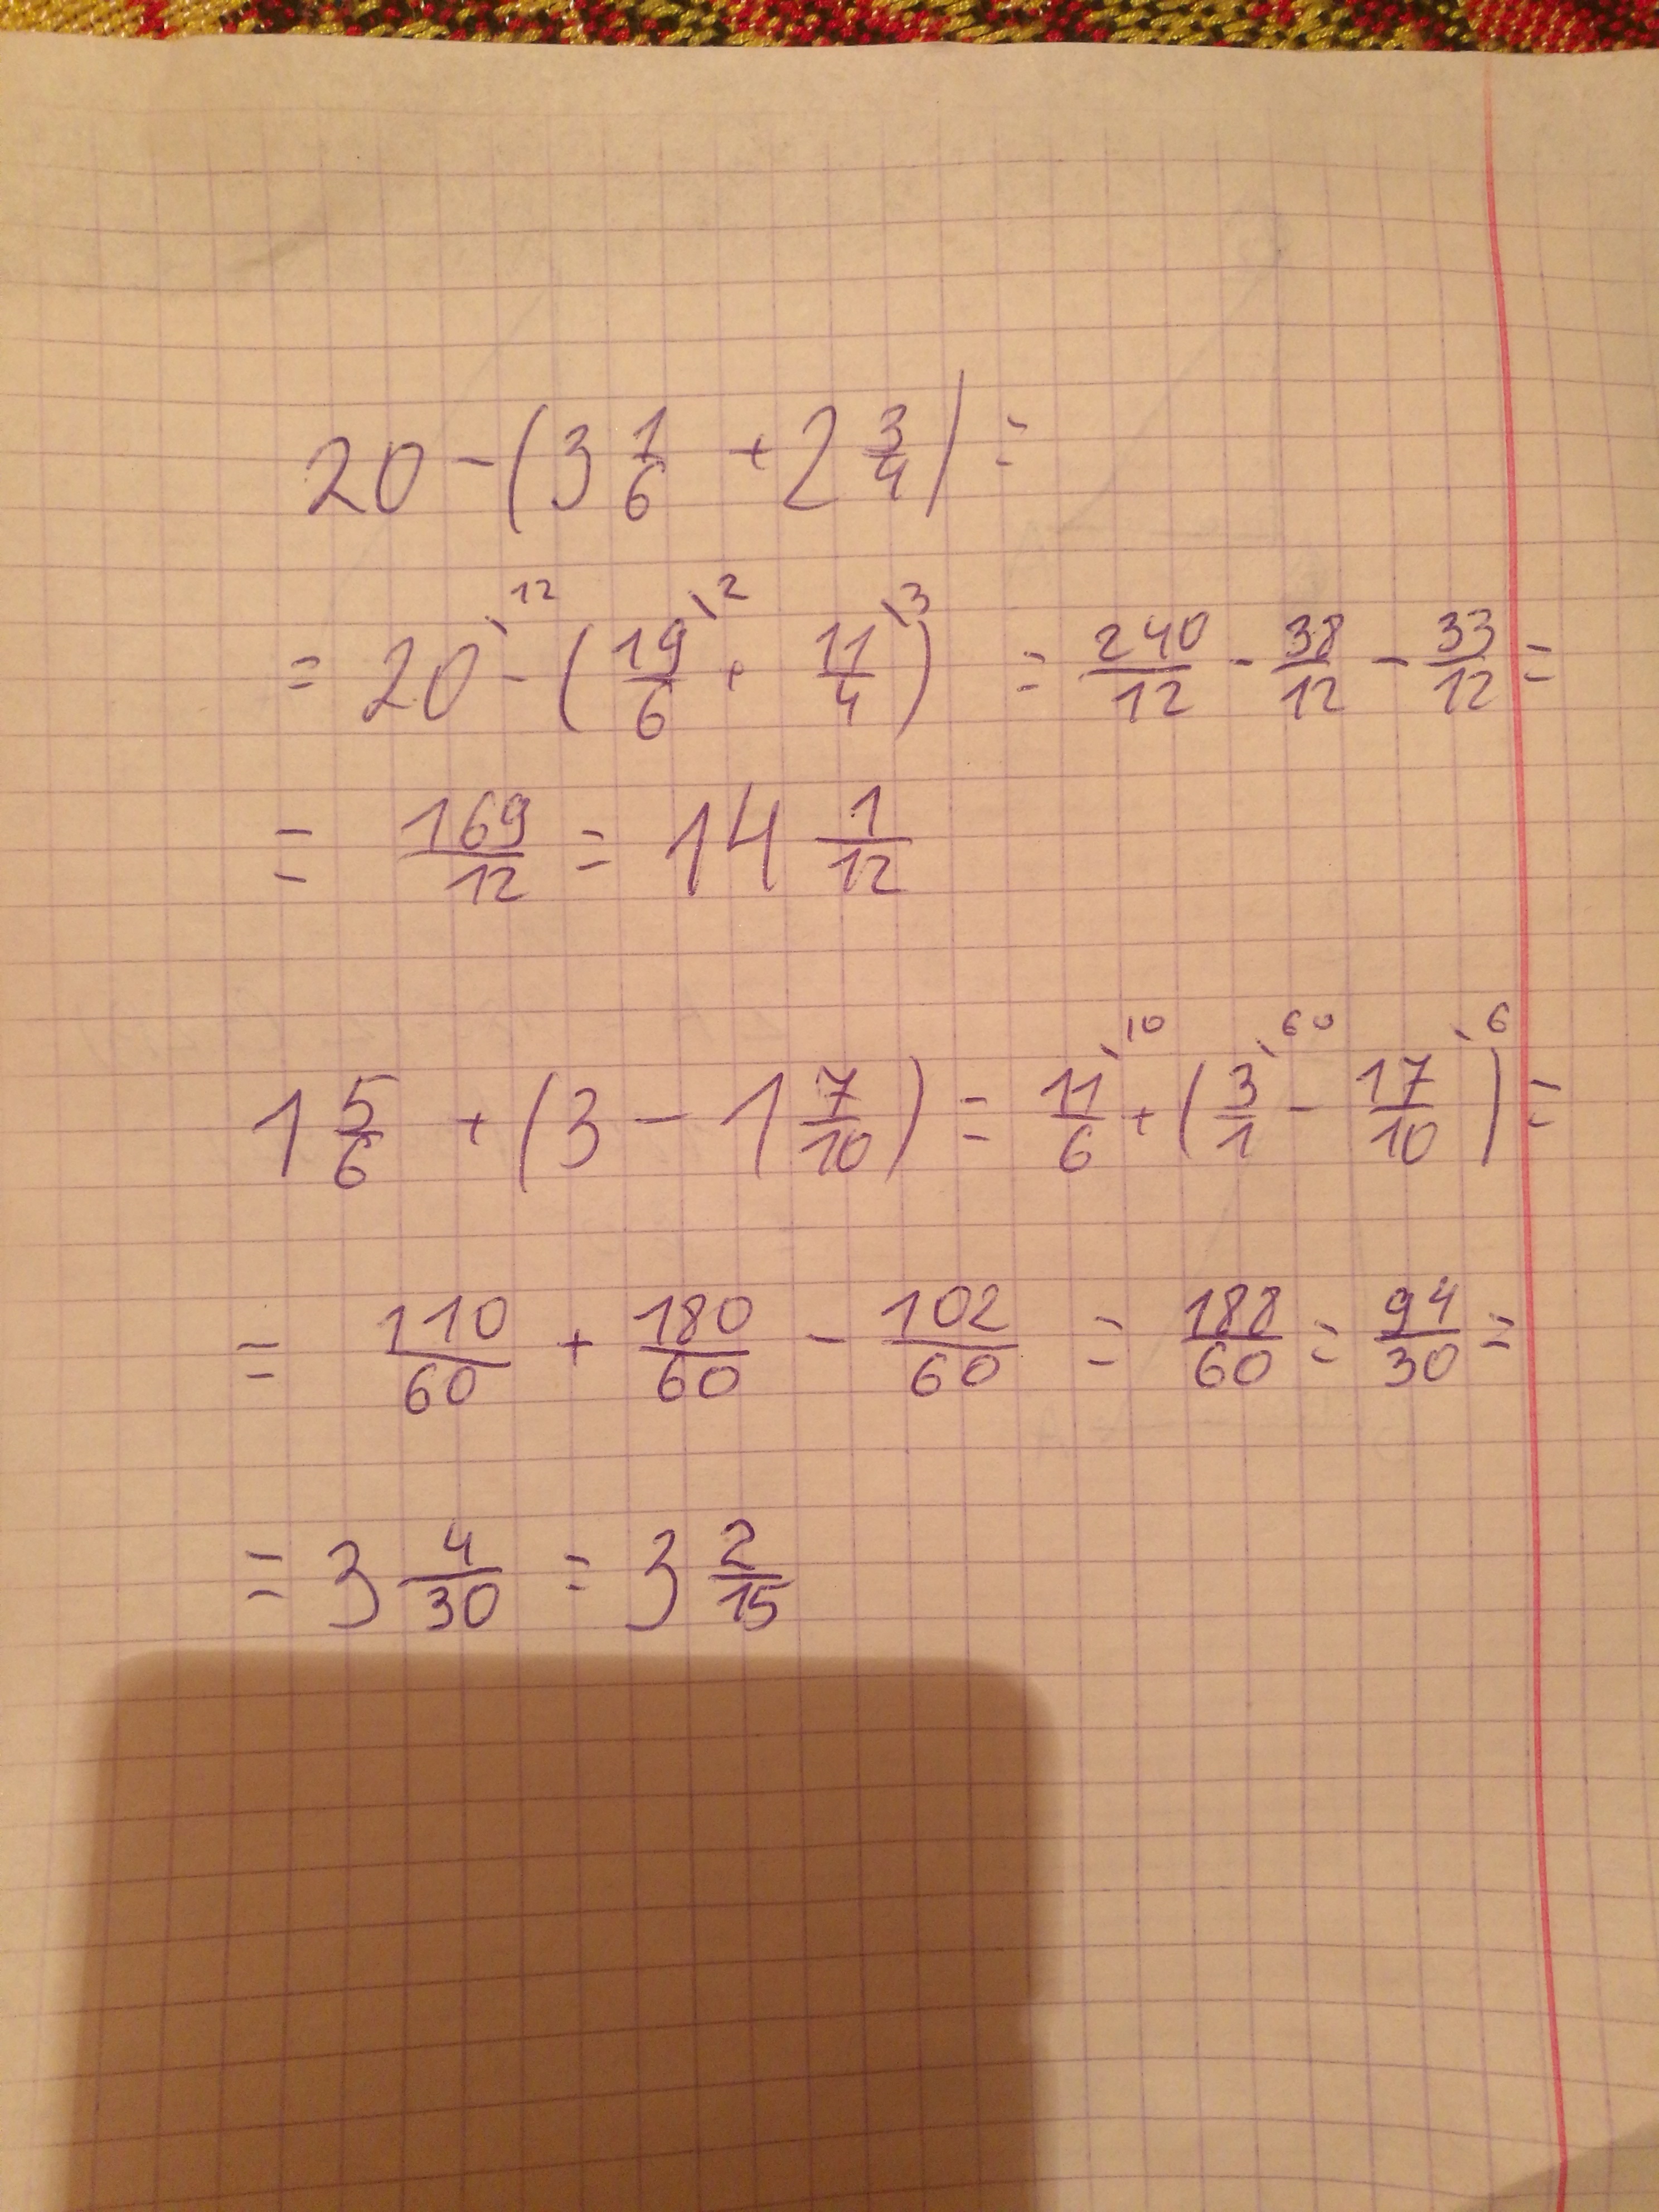 20 - (3 1/6 + 2 3/4) =
= 20\12 - (19/6\2 + 11/4\3) = 240/12 - 38/12 - 33/12 =
= 169/12 = 14 1/12
1 5/6 + (3 - 1 7/10) = 11/6\10 + (3/1\60 - 17/10\6) =
= 110/60 + 180/60 - 102/60 = 188/60 = 94/30 =
= 3 4/30 = 3 2/15